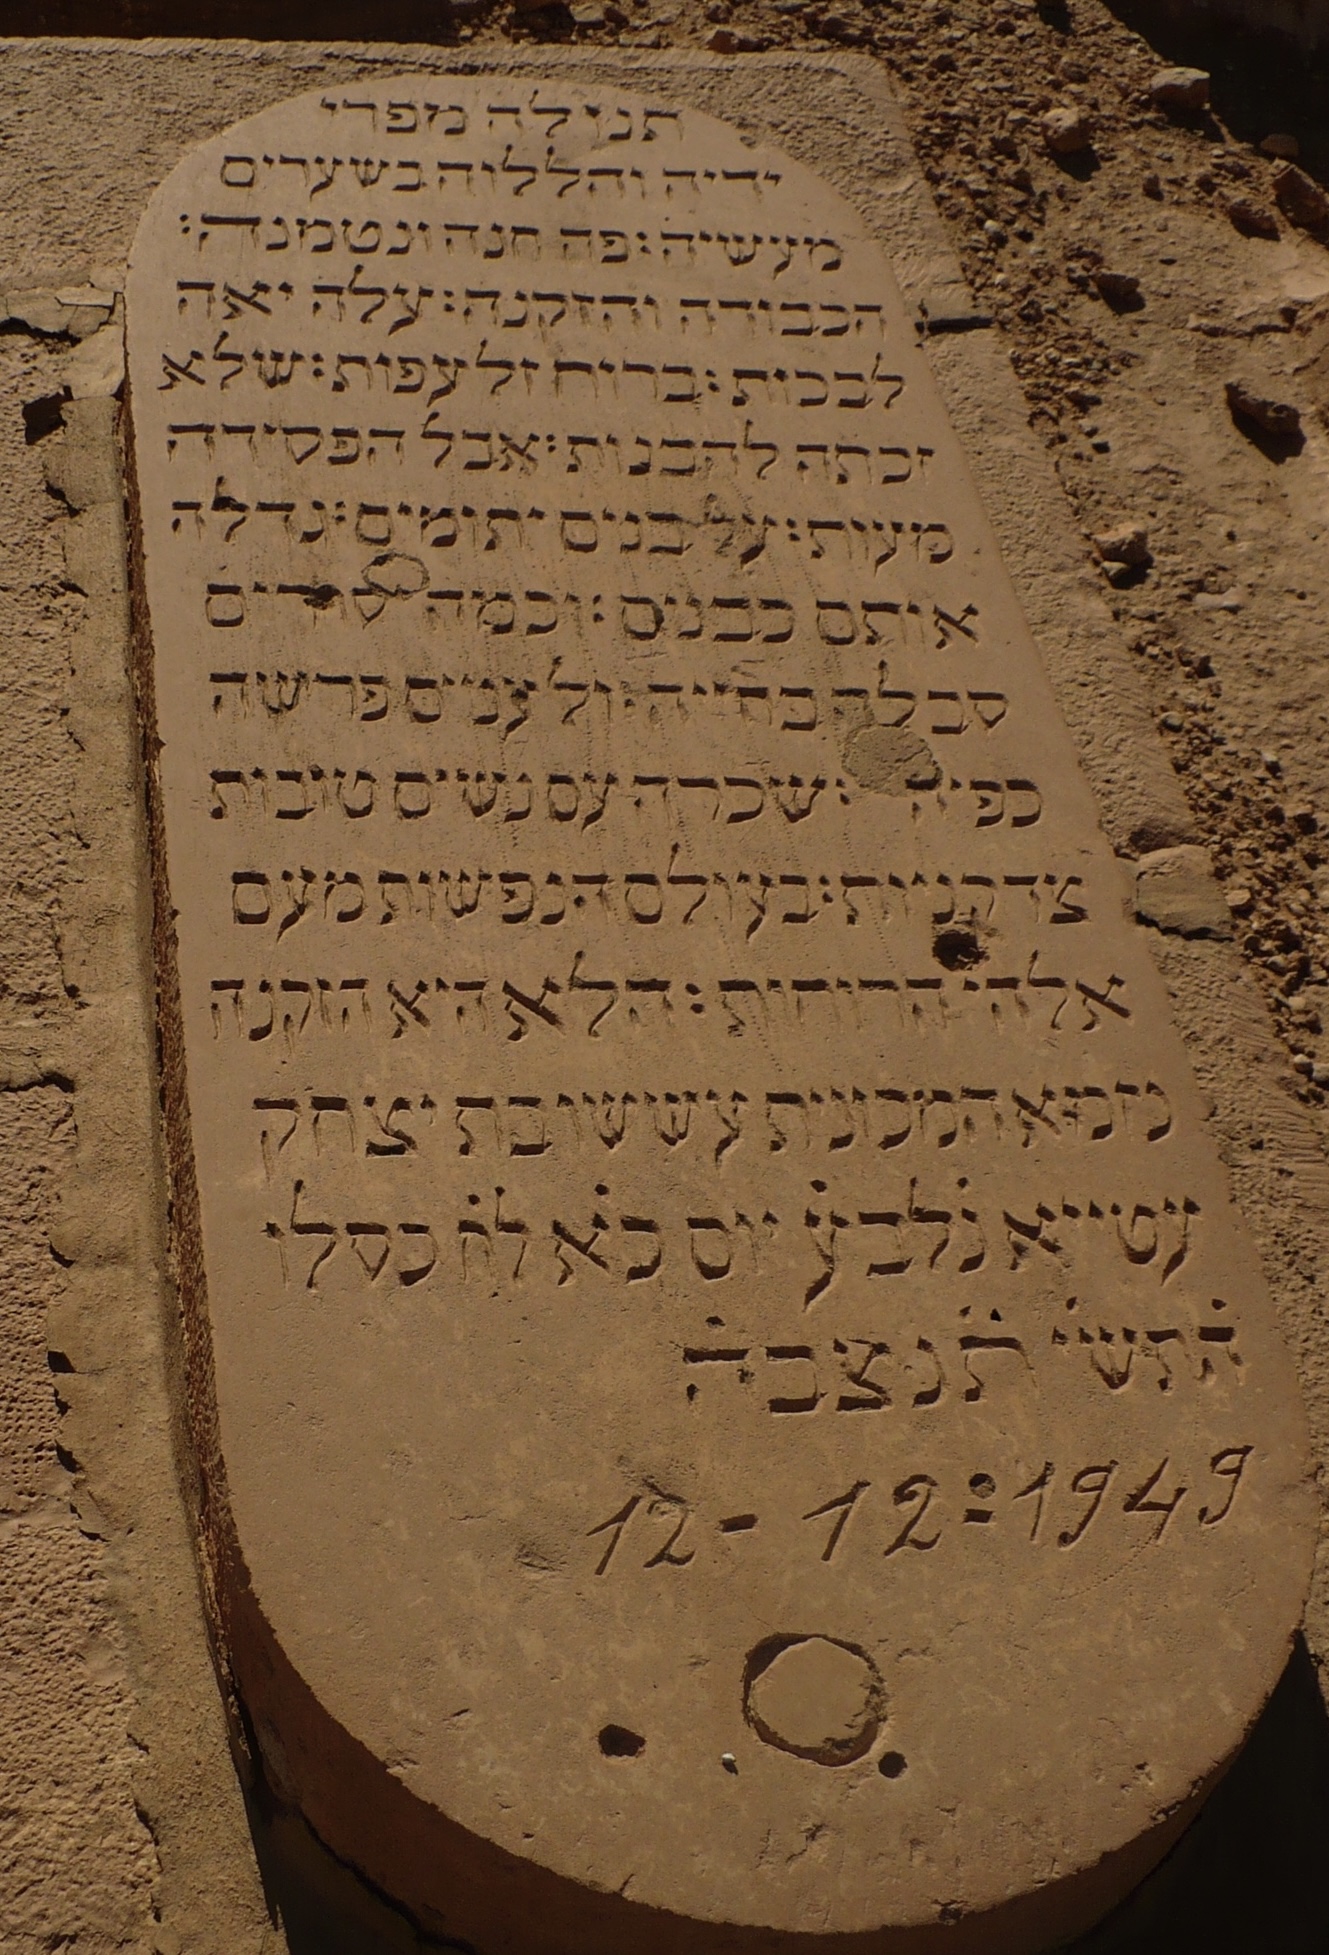 תנו לה מפרי
ידיה והללוה בשערים
מעשיה : פה חנה ונטמנה :
הכבודה והזקנה : עלה יאה
לבכות : ברוח זלעפות : שלא
זכתה להבנות : אבל הפסידה
מעות : על בנים יתומים : גדלה
אותם כבנים : וכמה יסורים
סבלה בחייה : ולעניים פרשה
כפיה : שכרה עם נשים טובות
צדקניות : בעולם הנפשות מעם
אלהי הרוחות : הלא היא הזקנה
ממא המכונית עששו בת יצחק
עטייא נ̇ל̇ב̇ע̇ יום כ̇א̇ לח̇ כסלו
ה̇תש̇י̇ ת̇נ̇צ̇ב̇ה̇
12 - 12 : 1949